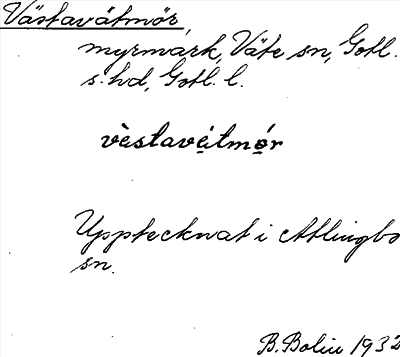 Västavåtmör,
myrmark, Väte sn, Gotl.
s. hd, Gotl. l.
vèstavé̱tmó̱r
Upptecknat i Atlingbo
sn.
B. Bolin 1932